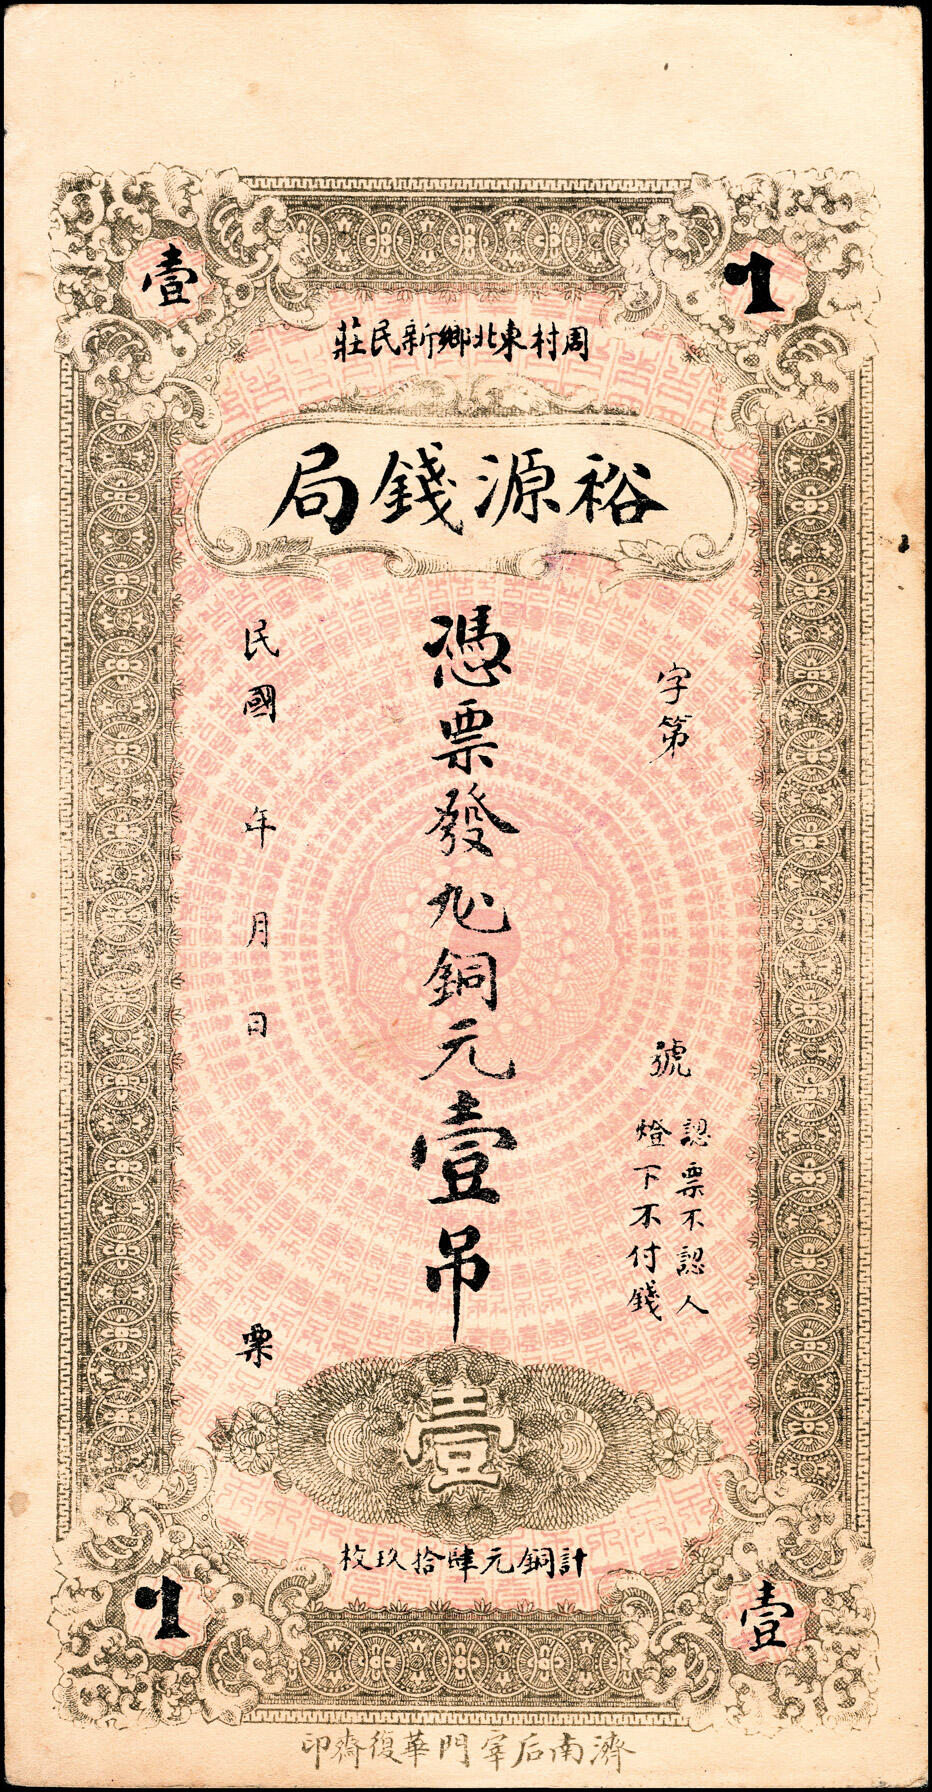 1
壹
周村東北鄉新民莊
裕源錢局
字第號
認票不認人
燈下不付錢
憑票發九八銅元壹吊
民國年月日票
壹
計銅元肆拾玖枚
壹
1
濟南后宰門華復齋印